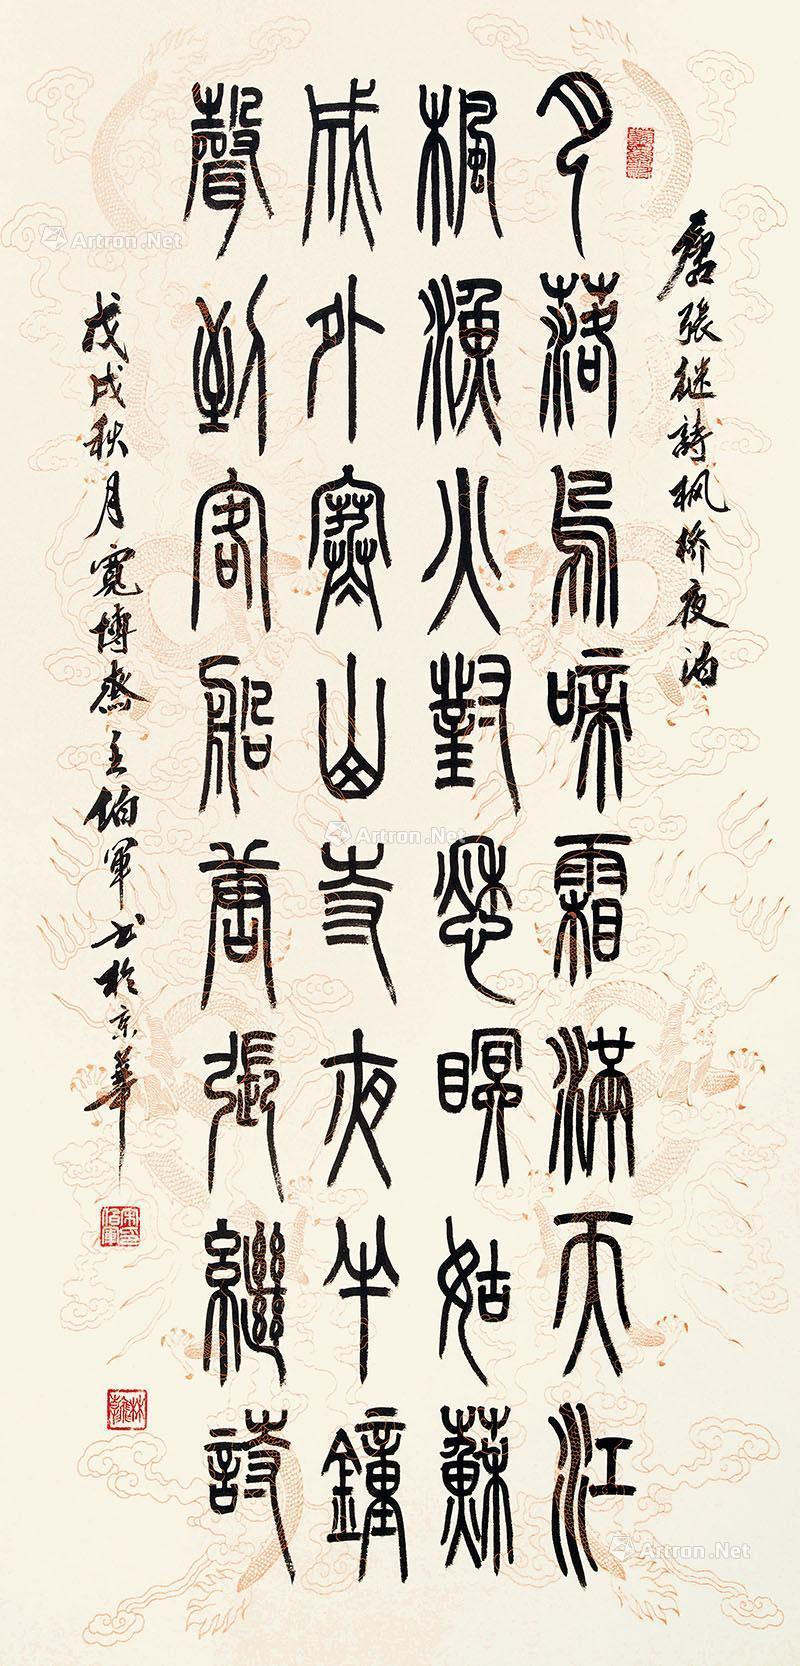 唐張继詩枫桥夜泊
月落烏啼霜滿天江
楓漁火對愁瞑姑蘇
成外寒山寺夜半鐘
聲到客船唐張繼詩
戊戌秋月寬博齋主伯軍书於京華
Artron.Net
Artron.Net
Artron.Net